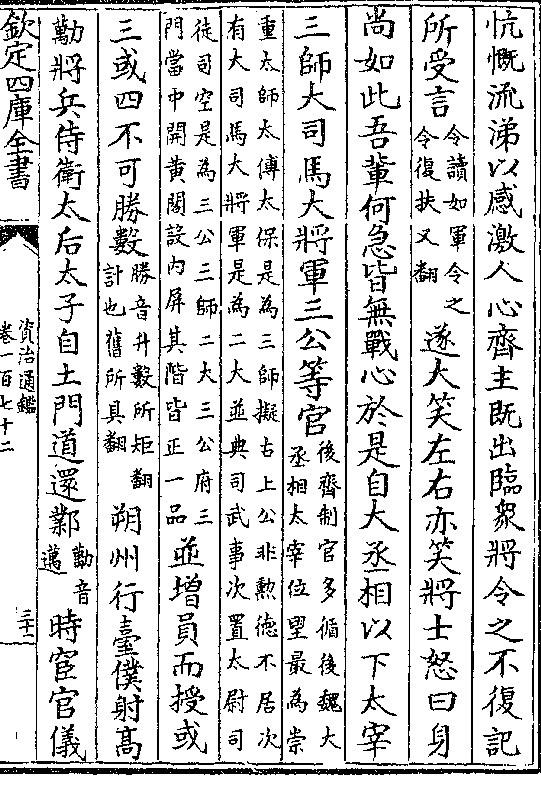 忼慨流涕以感激人心齊主既出臨衆將令之不復記
所受言
令讀如軍令之
令復扶又翻
遂大笑左右亦笑將士怒曰身
尚如此吾輩何急皆無戰心於是自大丞相以下太宰
三師大司馬大將軍三公等官
後齊制官多循後魏大
丞相太宰位望最為崇
重太師太傅太保是為三師擬古上公非勲德不居次
有大司馬大將軍是為二大並典司武事次置太尉司
徒司空是為三公三師二大三公府三
門當中開黄閤設内屏其階皆正一品
並增員而授或
三或四不可勝數
勝音升數所矩翻
計也舊所具翻
朔州行臺僕射髙
勱將兵侍衛太后太子自土門道還鄴
勱音
邁
時宦官儀
欽定四庫全書
資治通鑑
卷一百七十二
三十二